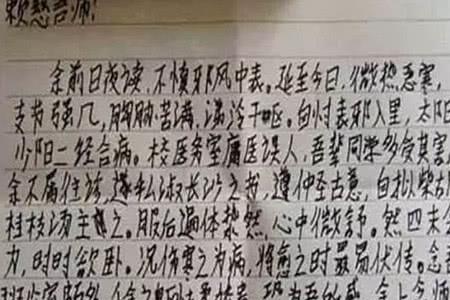 赖慈吾师:
余前日夜读,不慎邪风中表。延至今日,微热恶寒,
支节强几,胸胁苦满,涕泠干呕。自忖表邪入里,太阳
少阳二经合病。校医务室庸医误人,吾辈同学多受其害,
余不属往诊,遂私淑长沙之书,遵仲圣古意,自拟柴胡
桂枝汤主之。服后遍体漐然,心中微舒。然四末乏
力,时时欲卧。况伤寒之为病,将愈之时最易伏传。念吾
班